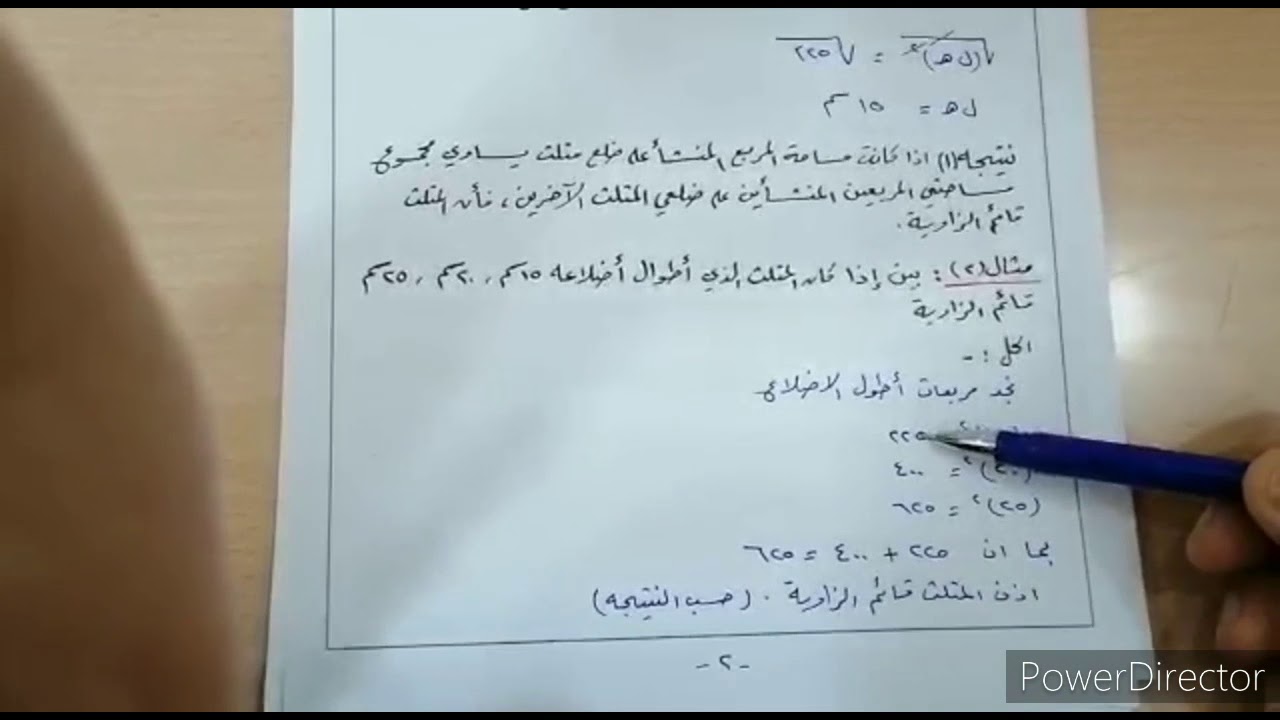 √(ل هـ)٢ = √٢٢٥
ل هـ = ١٥ سم
نتيجه (١) اذا كانت مساحة المربع المنشأ على ضلع مثلث يساوي مجموع
مساحتي المربعين المنشأين على ضلعي المثلث الآخرين ، فأن المثلث
قائم الزاوية .
مثال (٢) : بين إذا كان المثلث الذي أطوال أضلاعه ١٥ سم , ٢٠ سم , ٢٥ سم
قائم الزاوية
الحل : -
نجد مربعات أطول الاضلاع
٢٢٥
(٢٠)٢ = ٤٠٠
(٢٥)٢ = ٦٢٥
بما ان ٢٢٥ + ٤٠٠ = ٦٢٥
اذن المثلث قائم الزاوية . (حسب النتيجه)
-٢-
PowerDirector